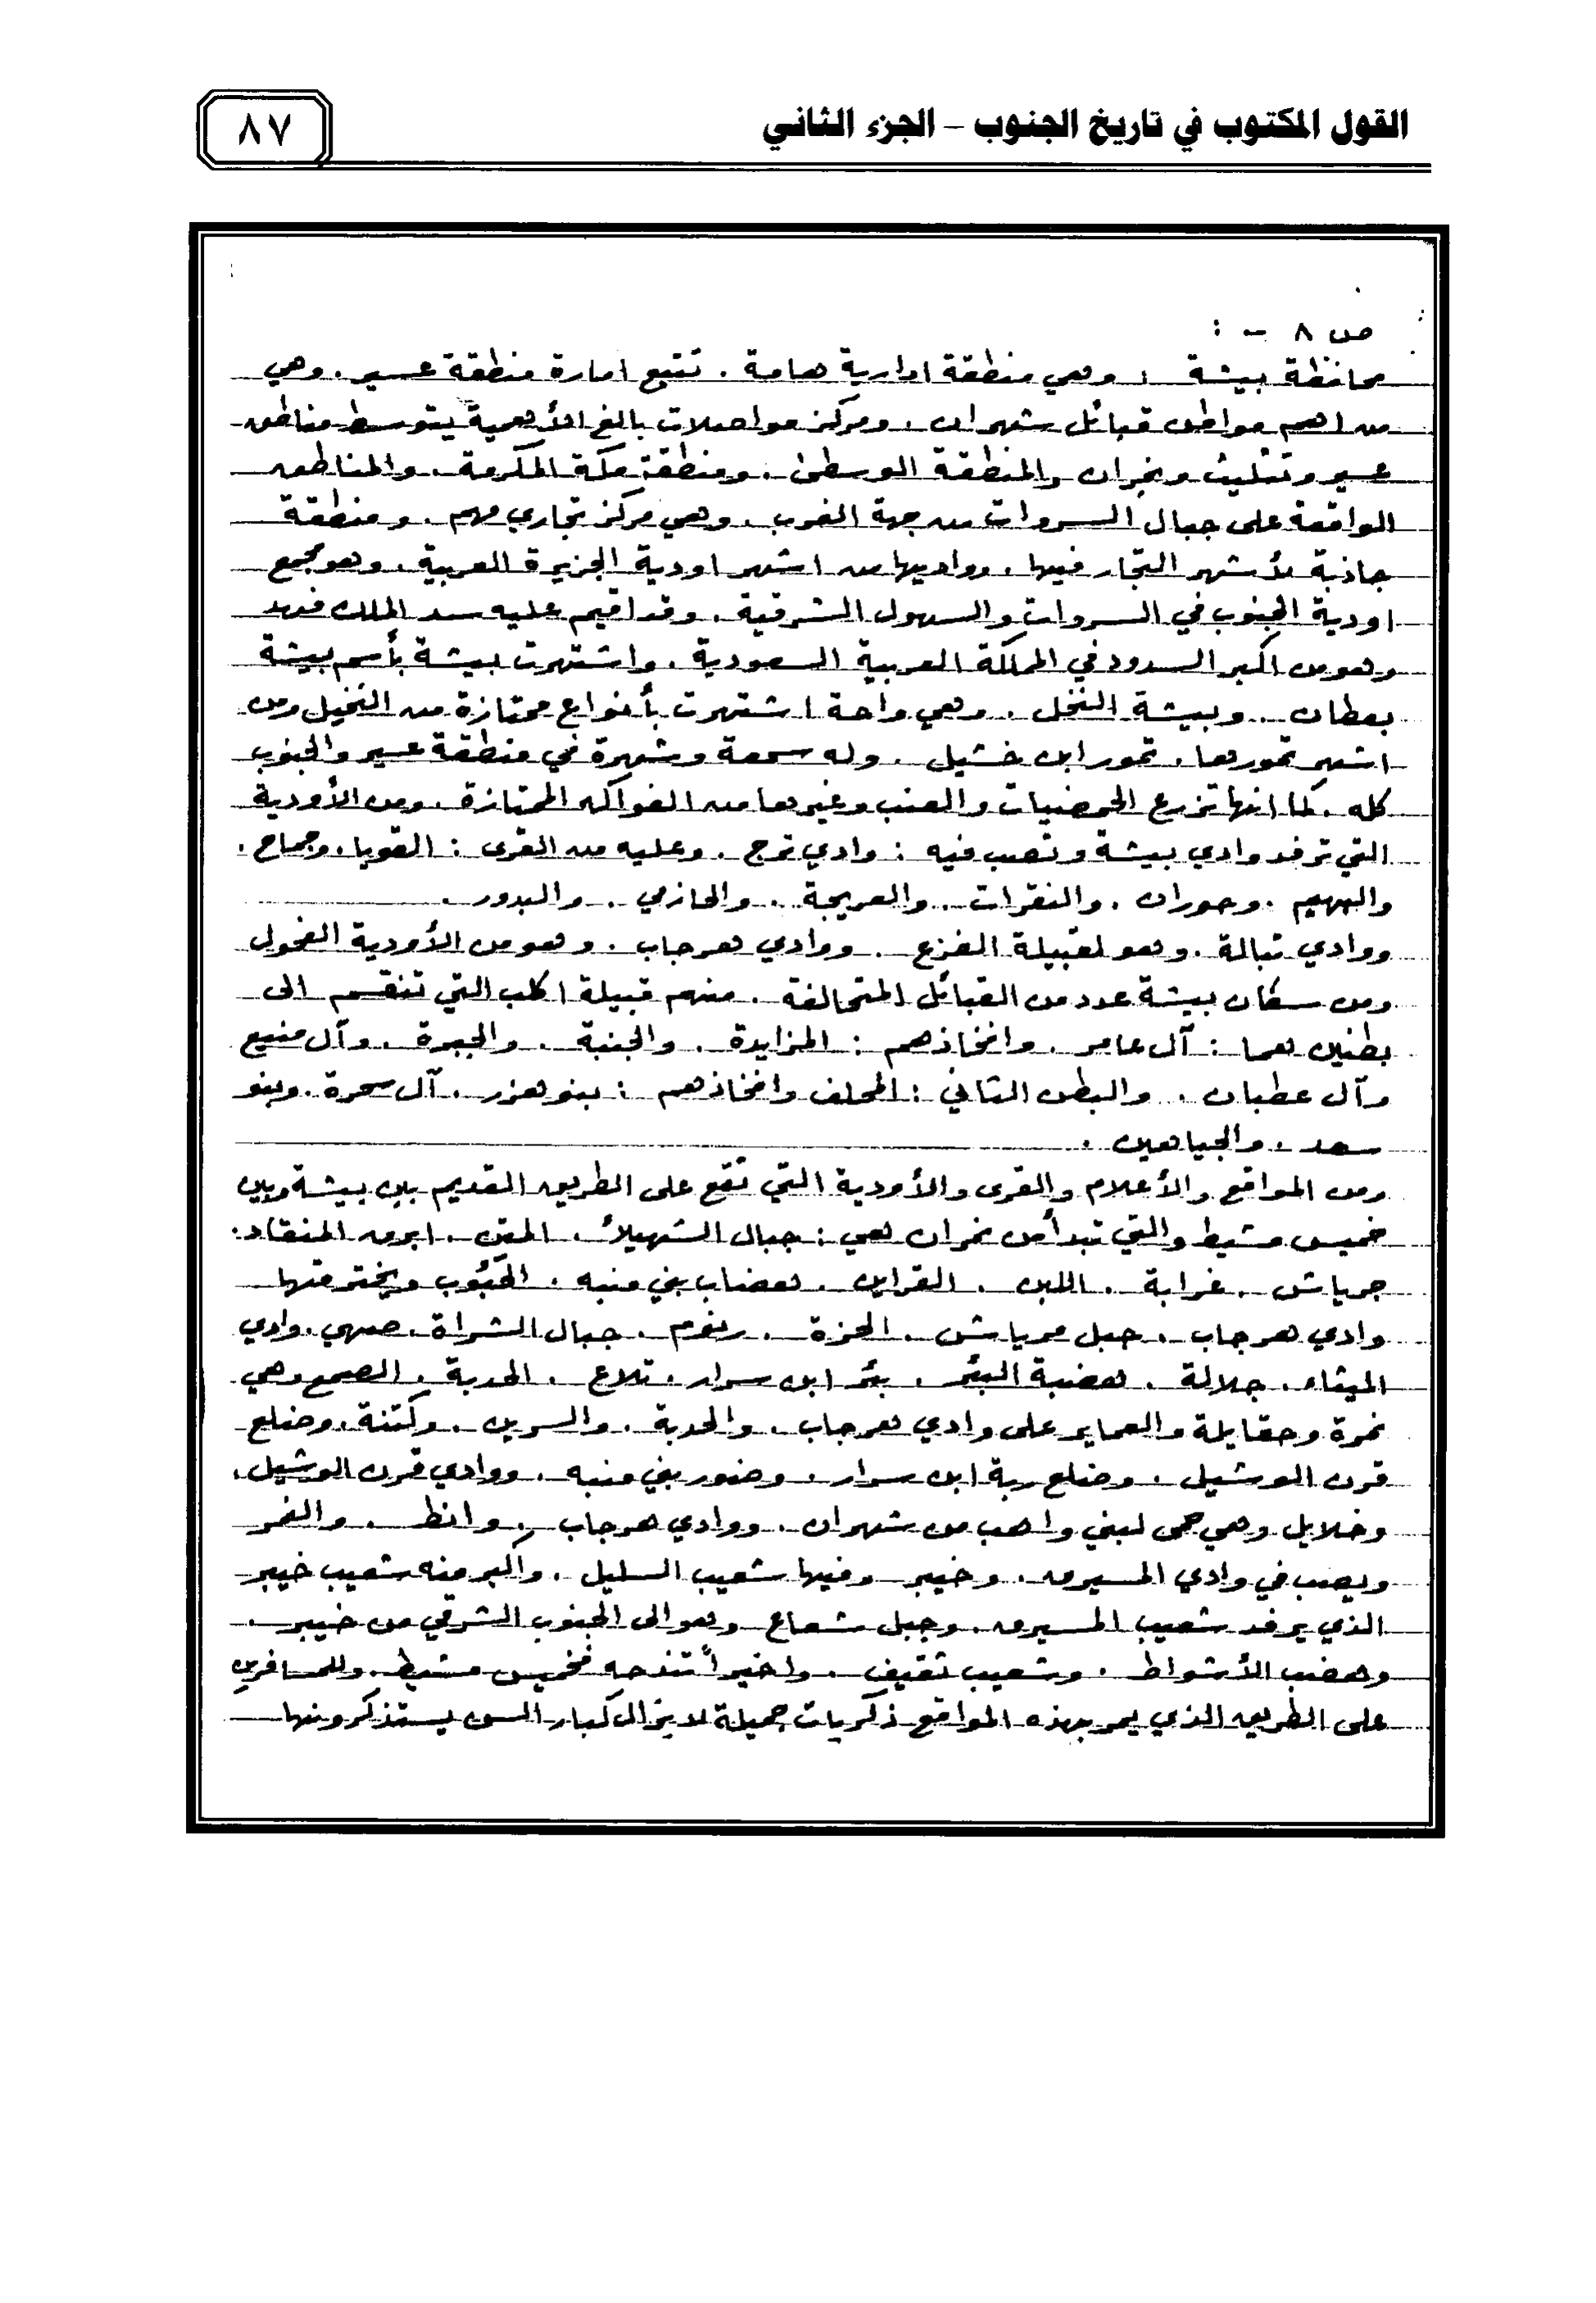 القول المكتوب في تاريخ الجنوب – الجزء الثاني
٨٧
ص ٨ - :
محافظة بيشة ، وهي منطقة ادارية هامة . تتبع امارة منطقة عسير . وهي
من اهم مواطن قبائل شهران . ومركز مواصلات بالغ الأهمية يتوسط مناطق
عسير وتثليث ونجران والمنطقة الوسطى . ومنطقة مكة المكرمة . والمناطق
الواقعة على جبال السروات من جهة الغرب . وهي مركز تجاري مهم . ومنطقة
جاذبة لأشهر التجار فيها . وواديها من اشهر اودية الجزيرة العربية . وهو مجمع
اودية الجنوب في السروات والسهول الشرقية . وقد اقيم عليه سد الملك فهد
وهو من اكبر السدود في المملكة العربية السعودية . واشتهرت بيشة بأسم بيشة
بعطان . وبيشة النخل . وهي واحة اشتهرت بأنواع ممتازة من النخيل ومن
اشهر تمورها . تمور ابن خشيل . وله سمعة وشهرة في منطقة عسير والجنوب
كله . كما انها تزرع الحمضيات والعنب وغيرها من الفواكه الممتازة . ومن الأودية
التي ترفد وادي بيشة وتصب فيه : وادي ترج . وعليه من القرى : القوبا . وجماح .
والبهيم . وحوران . والنقرات . والعريجة . والحازمي . والبدور .
ووادي تبالة . وهو لقبيلة الفزع . ووادي هرجاب . وهو من الأودية الفحول
ومن سكان بيشة عدد من القبائل المتحالفة . منهم قبيلة اكلب التي تنقسم الى
بطنين هما : آل عامر . وافخاذهم : المزايدة . والجنبة . والجبرة . وآل منيع
وآل عطبان . والبطن الثاني : المحلف وافخاذهم : بنو هزر . آل سحرة . وبنو
سعد . والجياهين .
ومن المواقع والأعلام والقرى والأودية التي تقع على الطريق القديم بين بيشة وبين
خميس مشيط والتي تبدأ من نمران هي : جبال الشهيلأ . المتن . ابرق المنقاد .
جرياش . غرابة . اللبن . القراين . هضاب بني منبه . الحَبُوب ويخترقها
وادي هرجاب . جبل مرياش . الحزة . رنوم . جبال الشراة . صهي . وادي
الميثاء . جلالة . هضبة البئر . بئر ابن سرار . تلاع . الحدبة . الصمع وهي
نمرة وحقايلة والعماير على وادي هرجاب . والحدبة . والسرين . وكتنة . وضلع
قرن الوشيل . وضلع ربة ابن سرار . وضور بني منبه . ووادي قرن الوشيل .
وخلايل وهي حمى لبني واهب من شهران . ووادي هرجاب . وانظ . والغمر
ويصب في وادي المسيرق . وخيبر وفيها شعيب السليل . واكبر منه شعيب خيبر
الذي يرفد شعيب المسيرق . وجبل شعاع وهو الى الجنوب الشرقي من خيبر .
وهضب الأشواط . وشعيب ثقيف . واخيراً تندحه فخميس مشيط . وللمسافرين
على الطريق الذي يمر بهذه المواقع ذكريات جميلة لا يزال كبار السن يستذكرونها